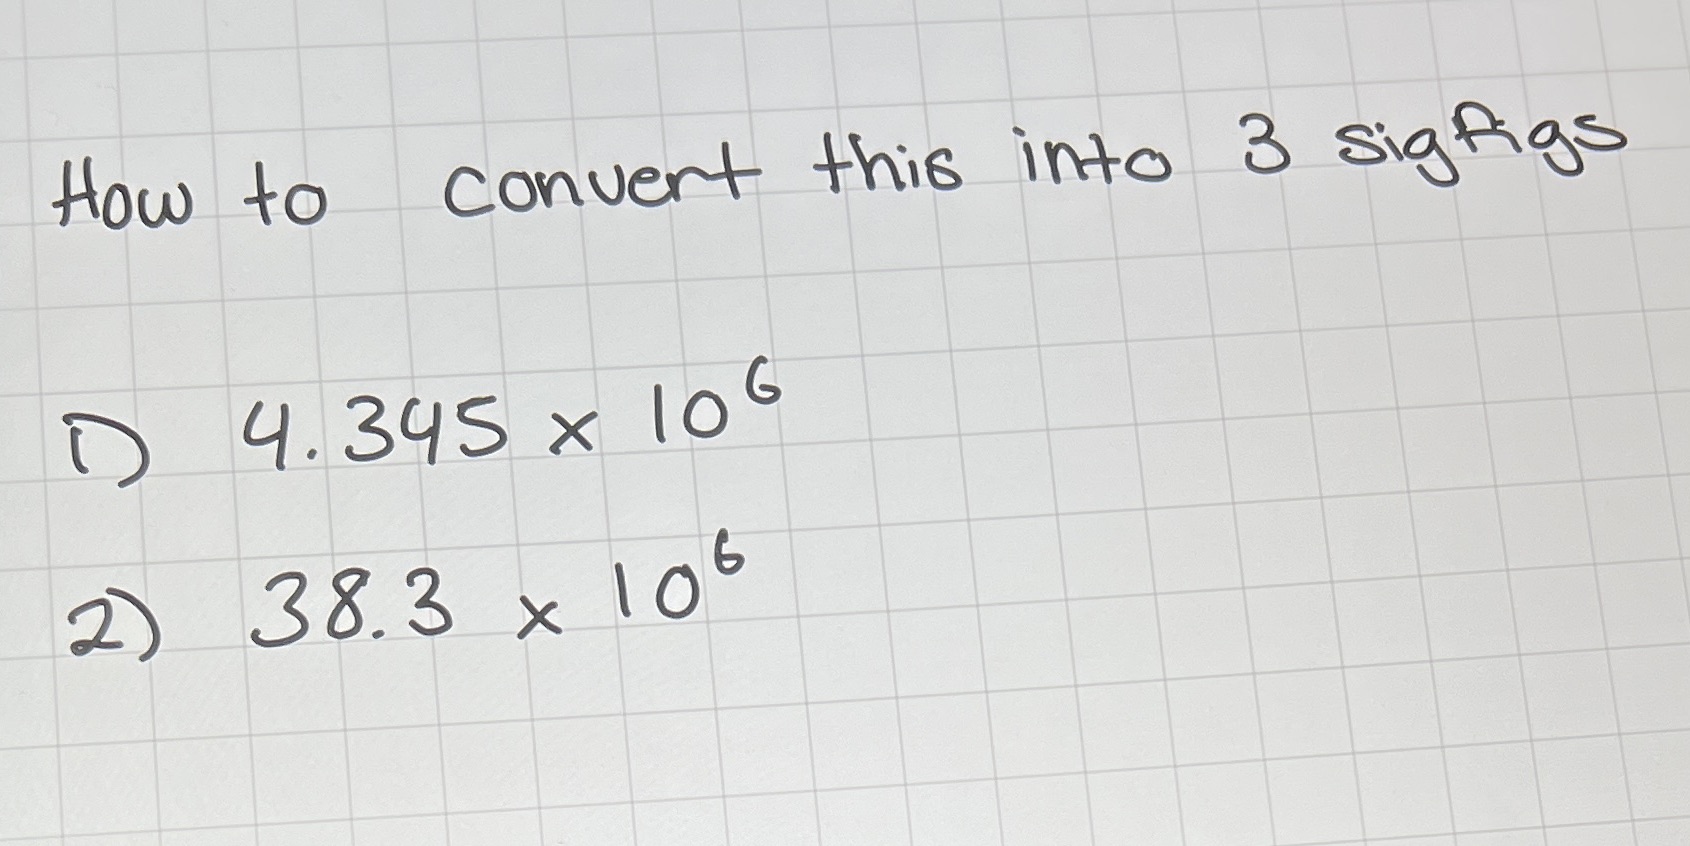 How to convert this into 3 sigfigs
1) 4.345 x 10⁶
2) 38.3 x 10⁶